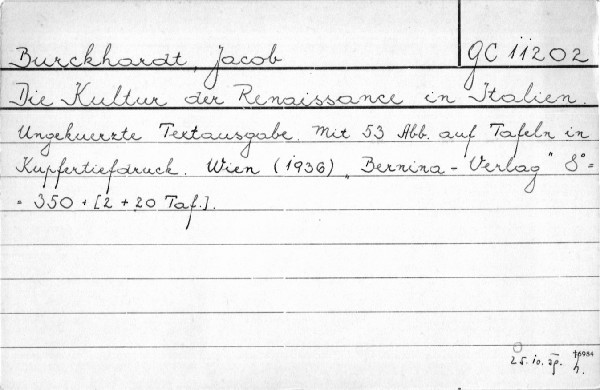 Burckhardt, Jacob GC 11202
Die Kultur der Renaissance in Italien.
Ungekuerzte Textausgabe. Mit 53 Abb. auf Tafeln in
Kupfertiefdruck. Wien (1936) „Bernina-Verlag" 8°=
= 350 + [2 + 20 Taf.].
25. 10.